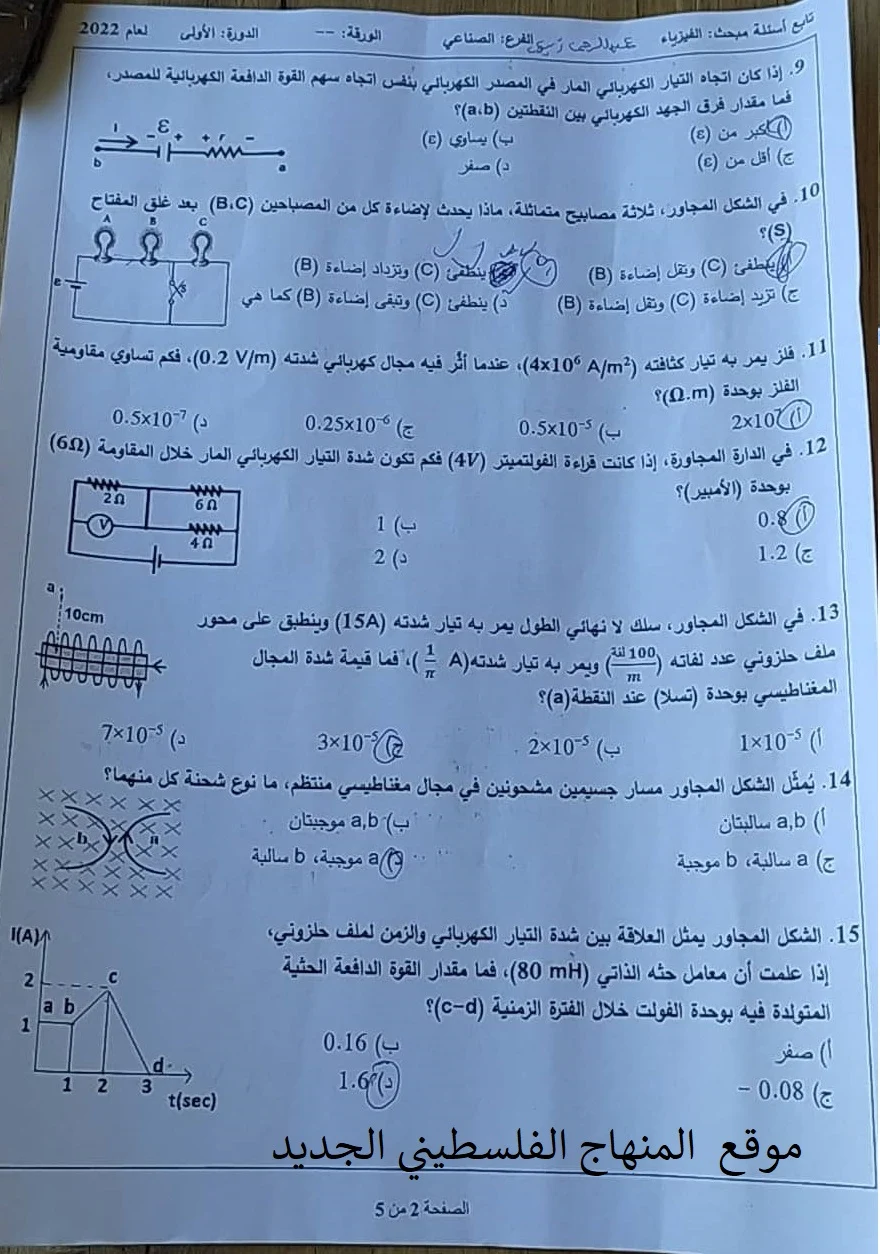 تابع أسئلة مبحث: الفيزياء الفرع: الصناعي الورقة: -- الدورة: الأولى لعام 2022
9. إذا كان اتجاه التيار الكهربائي المار في المصدر الكهربائي بنفس اتجاه سهم القوة الدافعة الكهربائية للمصدر،
فما مقدار فرق الجهد الكهربائي بين النقطتين (a،b)؟
أ) أكبر من (ε) ب) يساوي (ε)
ج) أقل من (ε) د) صفر
I ε - + + r -
b a
10. في الشكل المجاور، ثلاثة مصابيح متماثلة، ماذا يحدث لإضاءة كل من المصباحين (B،C) بعد غلق المفتاح
(S)؟
أ) ينطفئ (C) وتقل إضاءة (B) ب) ينطفئ (C) وتزداد إضاءة (B)
ج) تزيد إضاءة (C) وتقل إضاءة (B) د) ينطفئ (C) وتبقى إضاءة (B) كما هي
A B C
ε S
11. فلز يمر به تيار كثافته (4x10⁶ A/m²)، عندما أثّر فيه مجال كهربائي شدته (0.2 V/m)، فكم تساوي مقاومية
الفلز بوحدة (Ω.m)؟
أ) 2x10⁷ ب) 0.5x10⁻⁵ ج) 0.25x10⁻⁶ د) 0.5x10⁻⁷
12. في الدارة المجاورة، إذا كانت قراءة الفولتميتر (4V) فكم تكون شدة التيار الكهربائي المار خلال المقاومة (6Ω)
بوحدة (الأمبير)؟
أ) 0.8 ب) 1
ج) 1.2 د) 2
2Ω 6Ω
V 4Ω
13. في الشكل المجاور، سلك لا نهائي الطول يمر به تيار شدته (15A) وينطبق على محور
ملف حلزوني عدد لفاته (100 لفة/m) ويمر به تيار شدته(1/π A)، فما قيمة شدة المجال
المغناطيسي بوحدة (تسلا) عند النقطة(a)؟
أ) 1×10⁻⁵ ب) 2×10⁻⁵ ج) 3×10⁻⁵ د) 7×10⁻⁵
a
10cm
14. يُمثّل الشكل المجاور مسار جسيمين مشحونين في مجال مغناطيسي منتظم، ما نوع شحنة كل منهما؟
أ) a,b سالبتان ب) a,b موجبتان
ج) a سالبة، b موجبة د) a موجبة، b سالبة
b a
15. الشكل المجاور يمثل العلاقة بين شدة التيار الكهربائي والزمن لملف حلزوني،
إذا علمت أن معامل حثه الذاتي (80 mH)، فما مقدار القوة الدافعة الحثية
المتولدة فيه بوحدة الفولت خلال الفترة الزمنية (c-d)؟
أ) صفر ب) 0.16
ج) 0.08 − د) 1.6
I(A)
2 c
a b
1
d
1 2 3
t(sec)
موقع المنهاج الفلسطيني الجديد
الصفحة 2 من 5